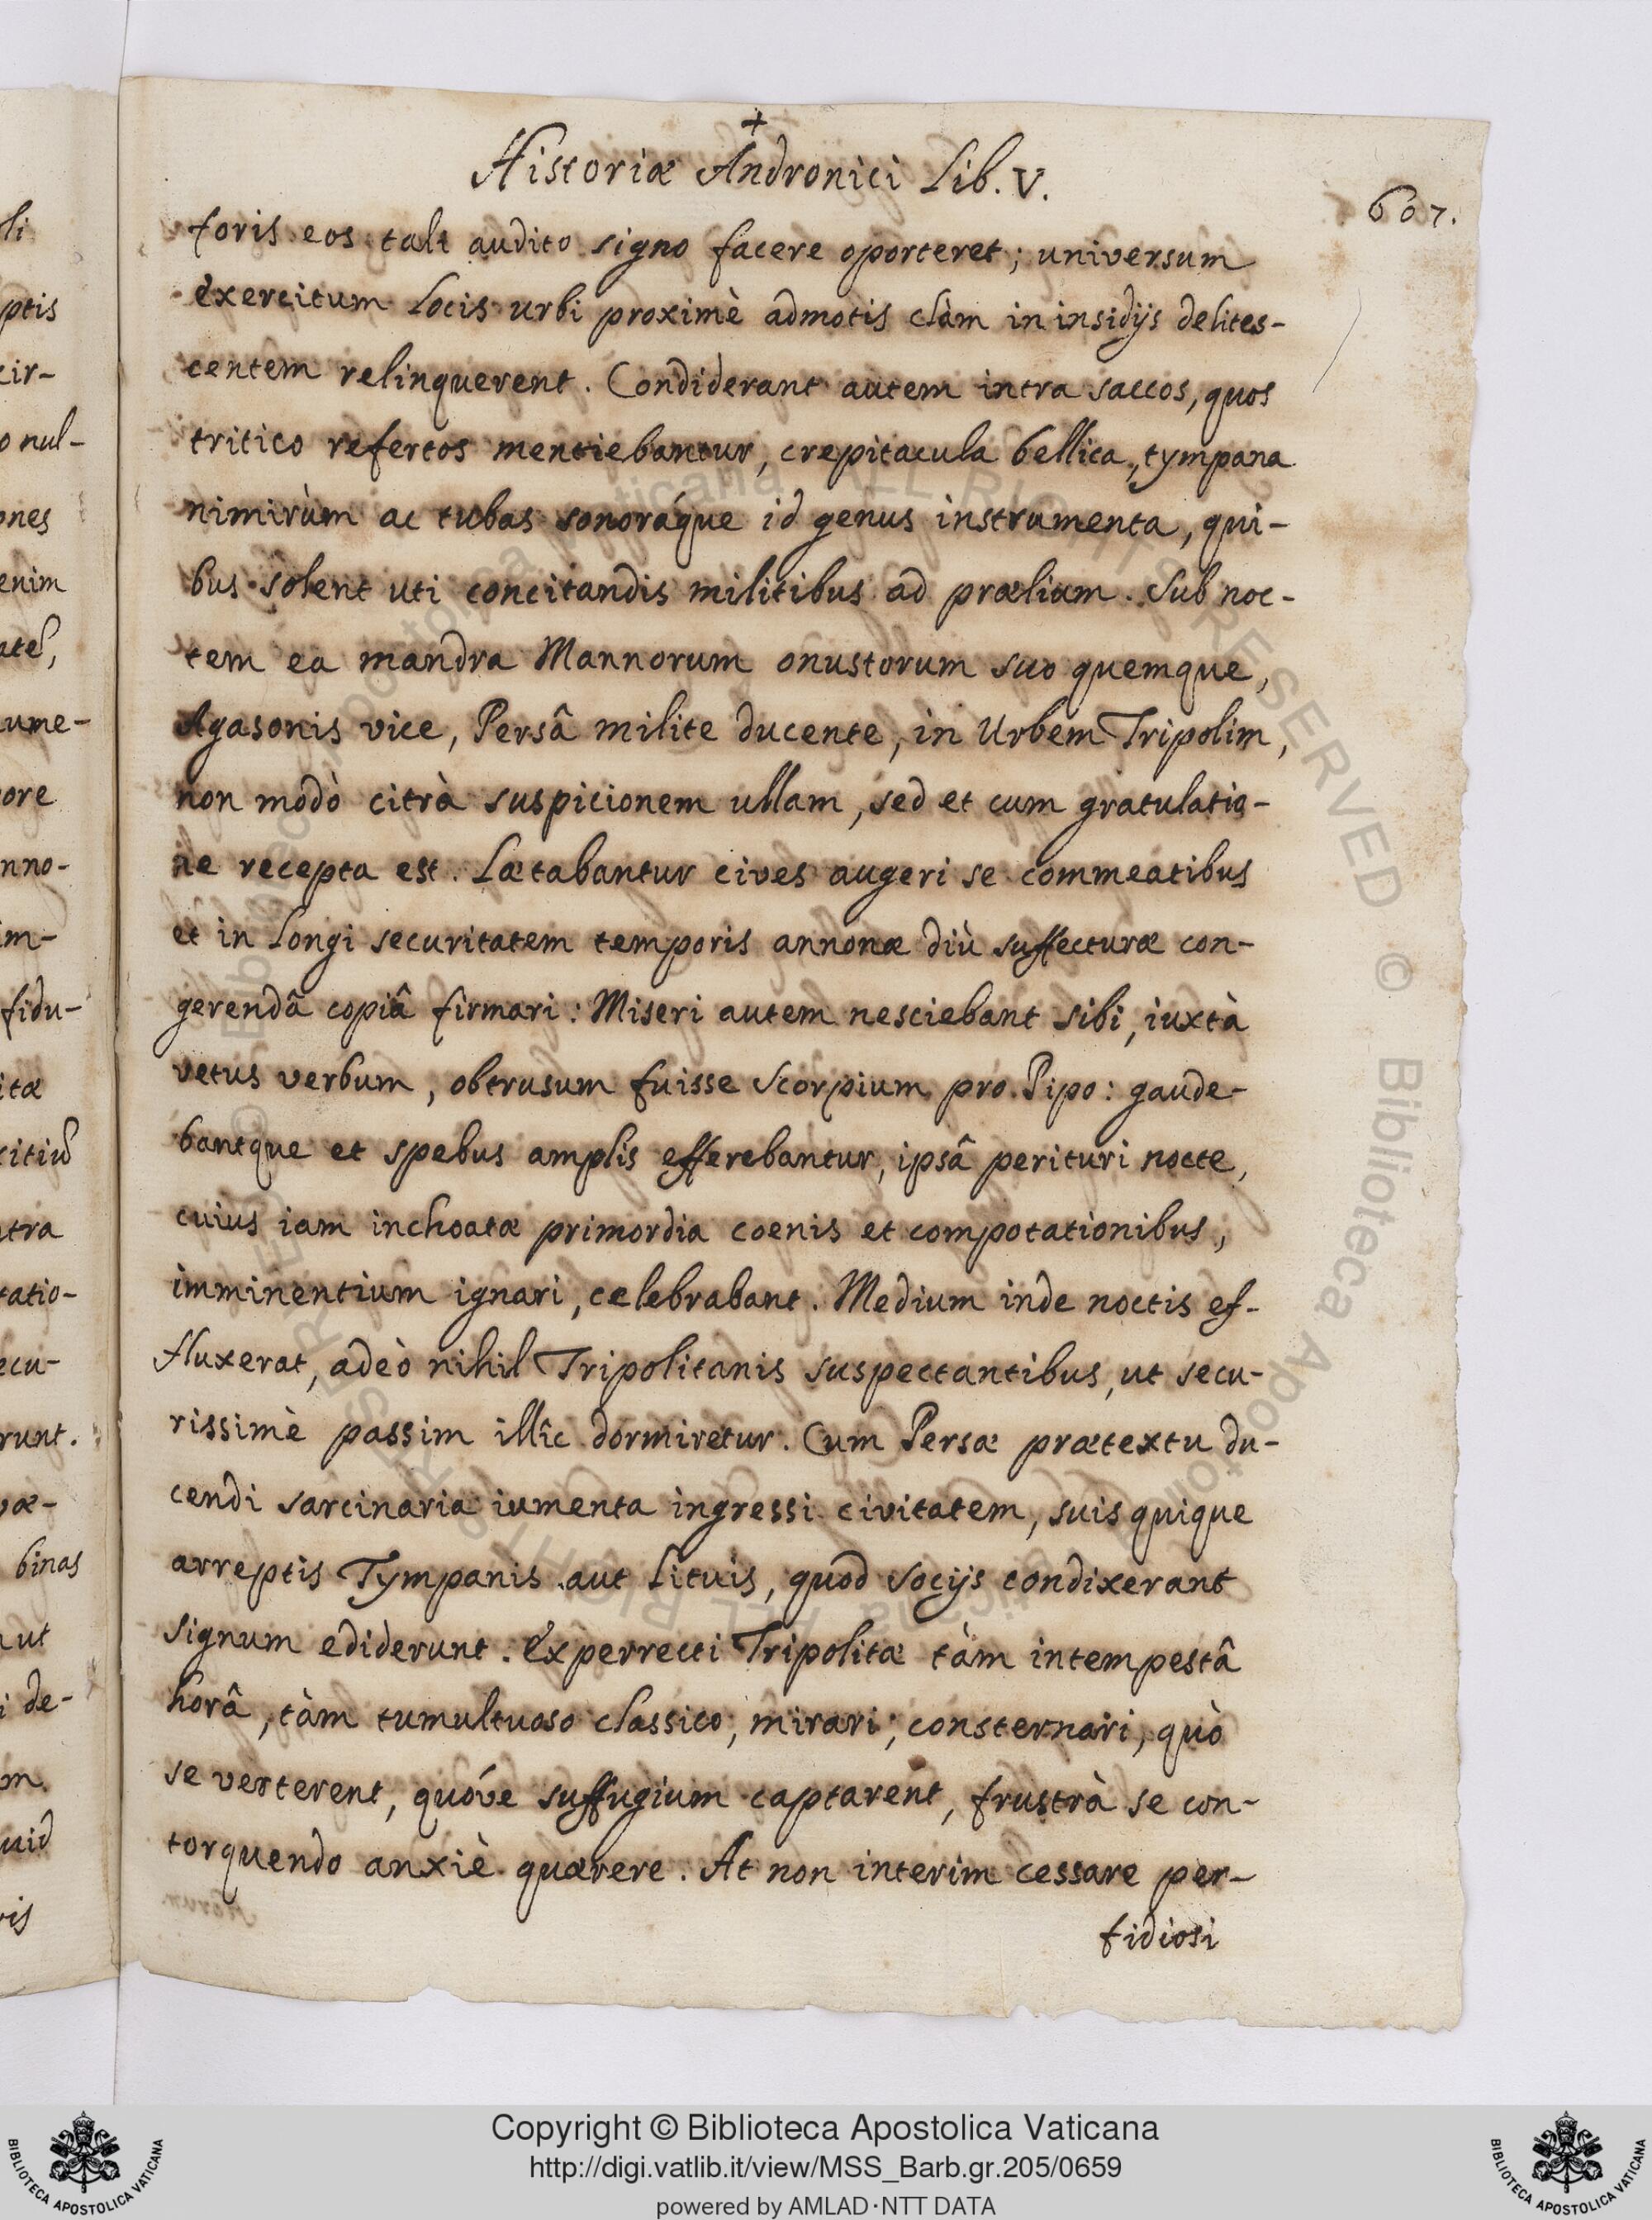 +
Historiæ Andronici Lib. V.
607.
foris eos tali audito signo facere oporteret; universum
exercitum Locis urbi proximè admotis clàm in insidijs delites-
centem relinquerent. Condiderant autem intra saccos, quos
tritico refertos mentiebantur, crepitacula bellica, tympana
nimirùm ac tubas sonoráque id genus instrumenta, qui-
bus solent uti concitandis militibus ad prælium. Sub noc-
tem ea mandra Mannorum onustorum suo quemque,
Agasonis vice, Persâ milite ducente, in Urbem Tripolim,
non modò citrà suspicionem ullam, sed et cum gratulatio-
ne recepta est. Lætabantur cives augeri se commeatibus
et in Longi securitatem temporis annonæ diù suffecturæ con-
gerendâ copiâ firmari: Miseri autem nesciebant sibi, iuxtà
vetus verbum, obtrusum fuisse Scorpium pro Pipo: gaude-
bantque et spebus amplis efferebantur, ipsâ perituri nocte,
cuius iam inchoatæ primordia coenis et compotationibus,
imminentium ignari, celebrabant. Medium inde noctis ef-
fluxerat, adeò nihil Tripolitanis suspectantibus, ut secu-
rissimè passim illîc dormiretur. Cum Persæ prætextu du-
cendi sarcinaria iumenta ingressi civitatem, suis quique
arreptis Tympanis aut Lituis, quod Socijs condixerant
signum ediderunt. Experrecti Tripolitæ tàm intempestâ
horâ, tàm tumultuoso classico, mirari; consternari, quò
se verterent, quóve suffugium captarent, frustrà se con-
torquendo anxiè quærere. At non interim cessare per-
fidiosi
li
ptis
cir-
o nul-
ones
enim
ume-
ore
nno-
im-
fidu-
itæ
tra
tatio-
ecu-
runt.
væ-
binas
ut
i de-
m
uid
is
Copyright © Biblioteca Apostolica Vaticana
http://digi.vatlib.it/view/MSS_Barb.gr.205/0659
powered by AMLAD·NTT DATA
BIBLIOTECA APOSTOLICA VATICANA
BIBLIOTECA APOSTOLICA VATICANA